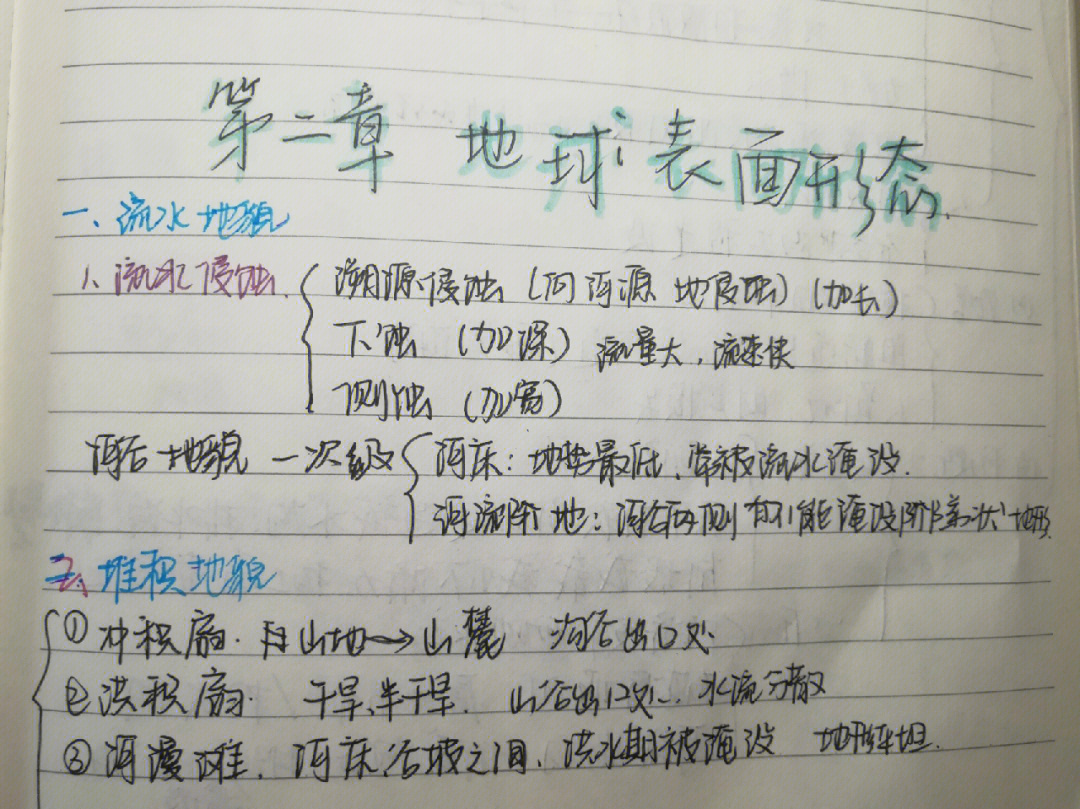 第二章 地球表面形态.
一、流水地貌
1、流水侵蚀
溯源侵蚀(向河源 地侵蚀)(加长)
下蚀 (加深) 流量大,流速快
侧蚀 (加宽)
河谷地貌 一次级
河床:地势最低,常被流水淹没.
河流阶地:河谷两侧 有不能淹没阶梯状地形.
二、堆积地貌
①冲积扇. 由山地→山麓 沟谷出口处
②洪积扇. 干旱、半干旱. 山谷出口处. 水流分散
③河漫滩. 河床谷坡之间,洪水期被淹没 地形平坦.